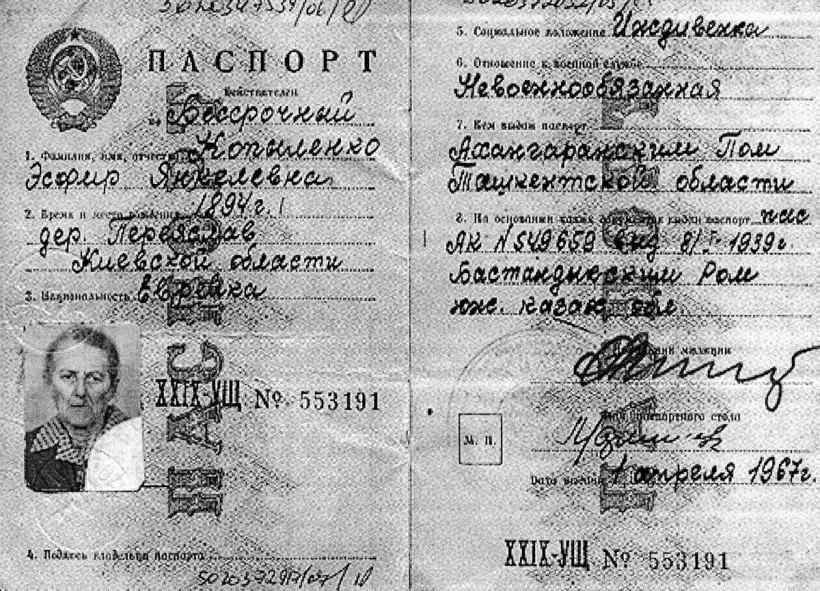 ПАСПОРТ
Действителен
Бессрочный
1. Фамилия, имя, отчество Копыленко
Эсфир Янкелевна
2. Время и место рождения 1894 г.
дер. Переяслав
Киевской области
3. Национальность Еврейка
XXIX-УЩ № 553191
4. Подпись владельца паспорта
5. Социальное положение Иждивенка
6. Отношение к военной службе
Невоеннообязанная
7. Кем выдан паспорт
Ахангаранским Пом
Ташкентской области
8. На основании каких документов выдан паспорт пас
АК N 549659 выд 8/I 1939 г.
Бастандыкским Ром
юж. казах обл.
милиции
паспортного стола
М. П.
Дата выдачи 1 апреля 1967 г.
XXIX-УЩ № 553191